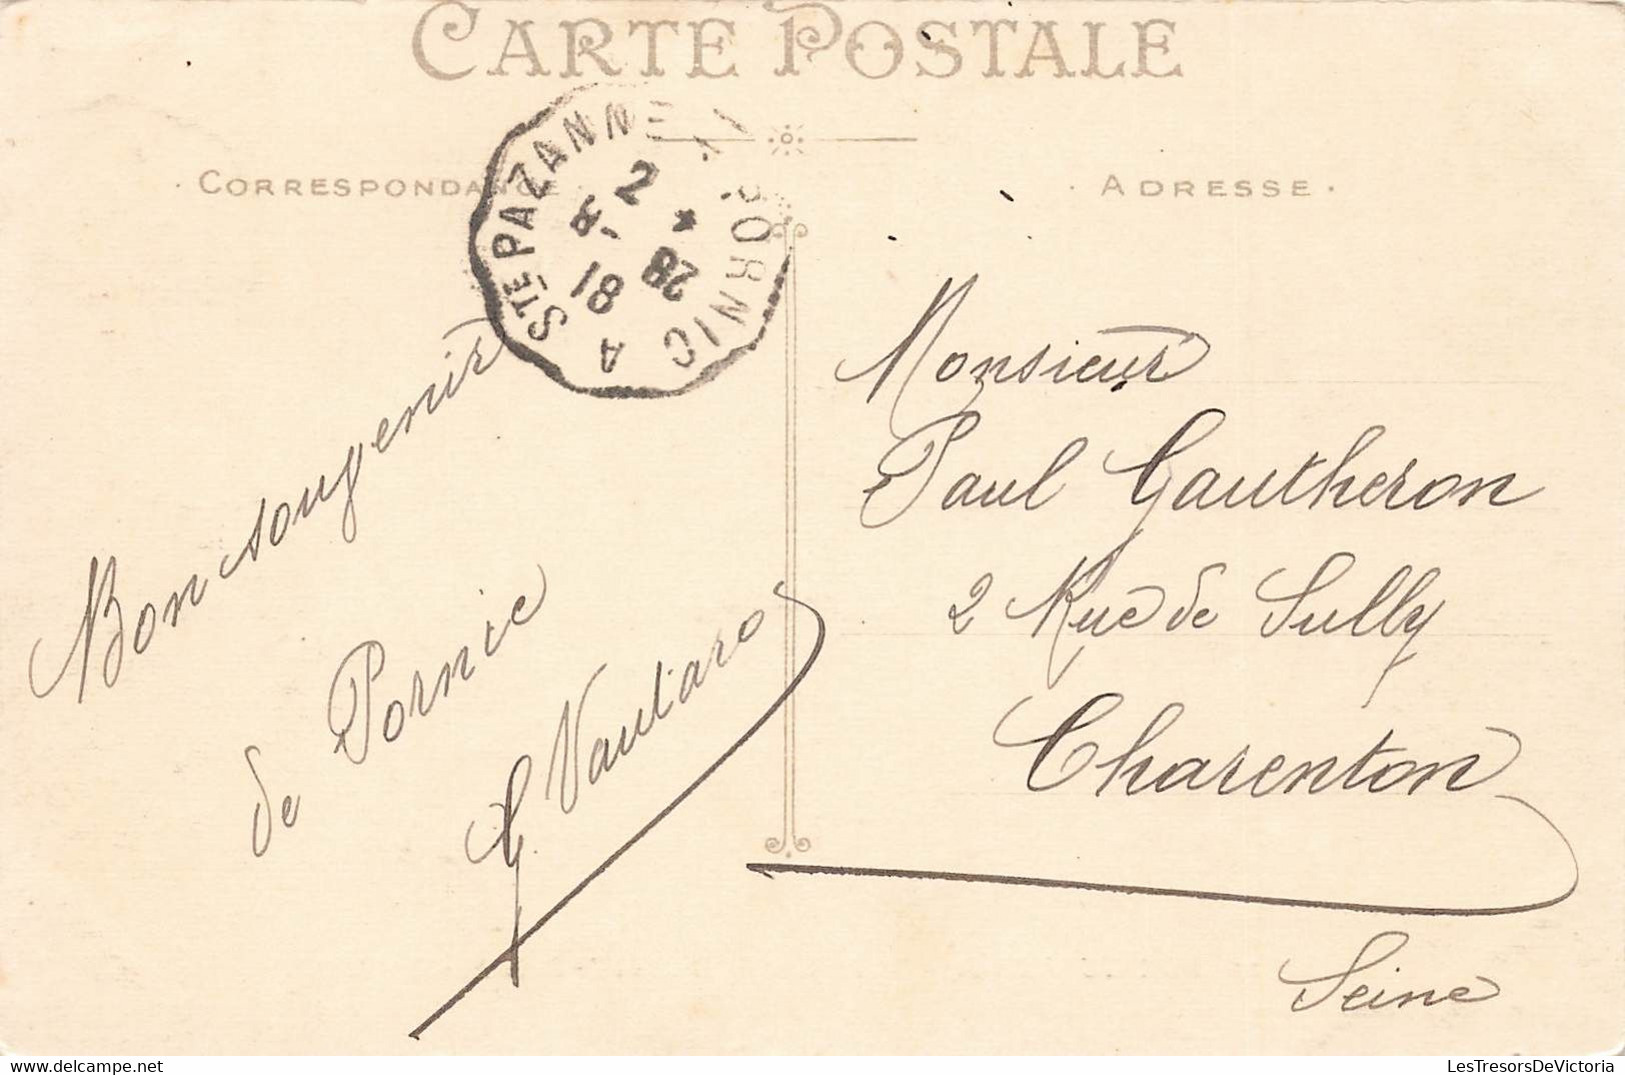 CARTE POSTALE
CORRESPONDANCE
ADRESSE
STE PAZANNE A PORNIC
2
28
81
A
Bon souvenir
de Pornic
G Vautaro
Monsieur
Paul Gautheron
2 Rue de Sully
Charenton
Seine
LesTresorsDeVictoria